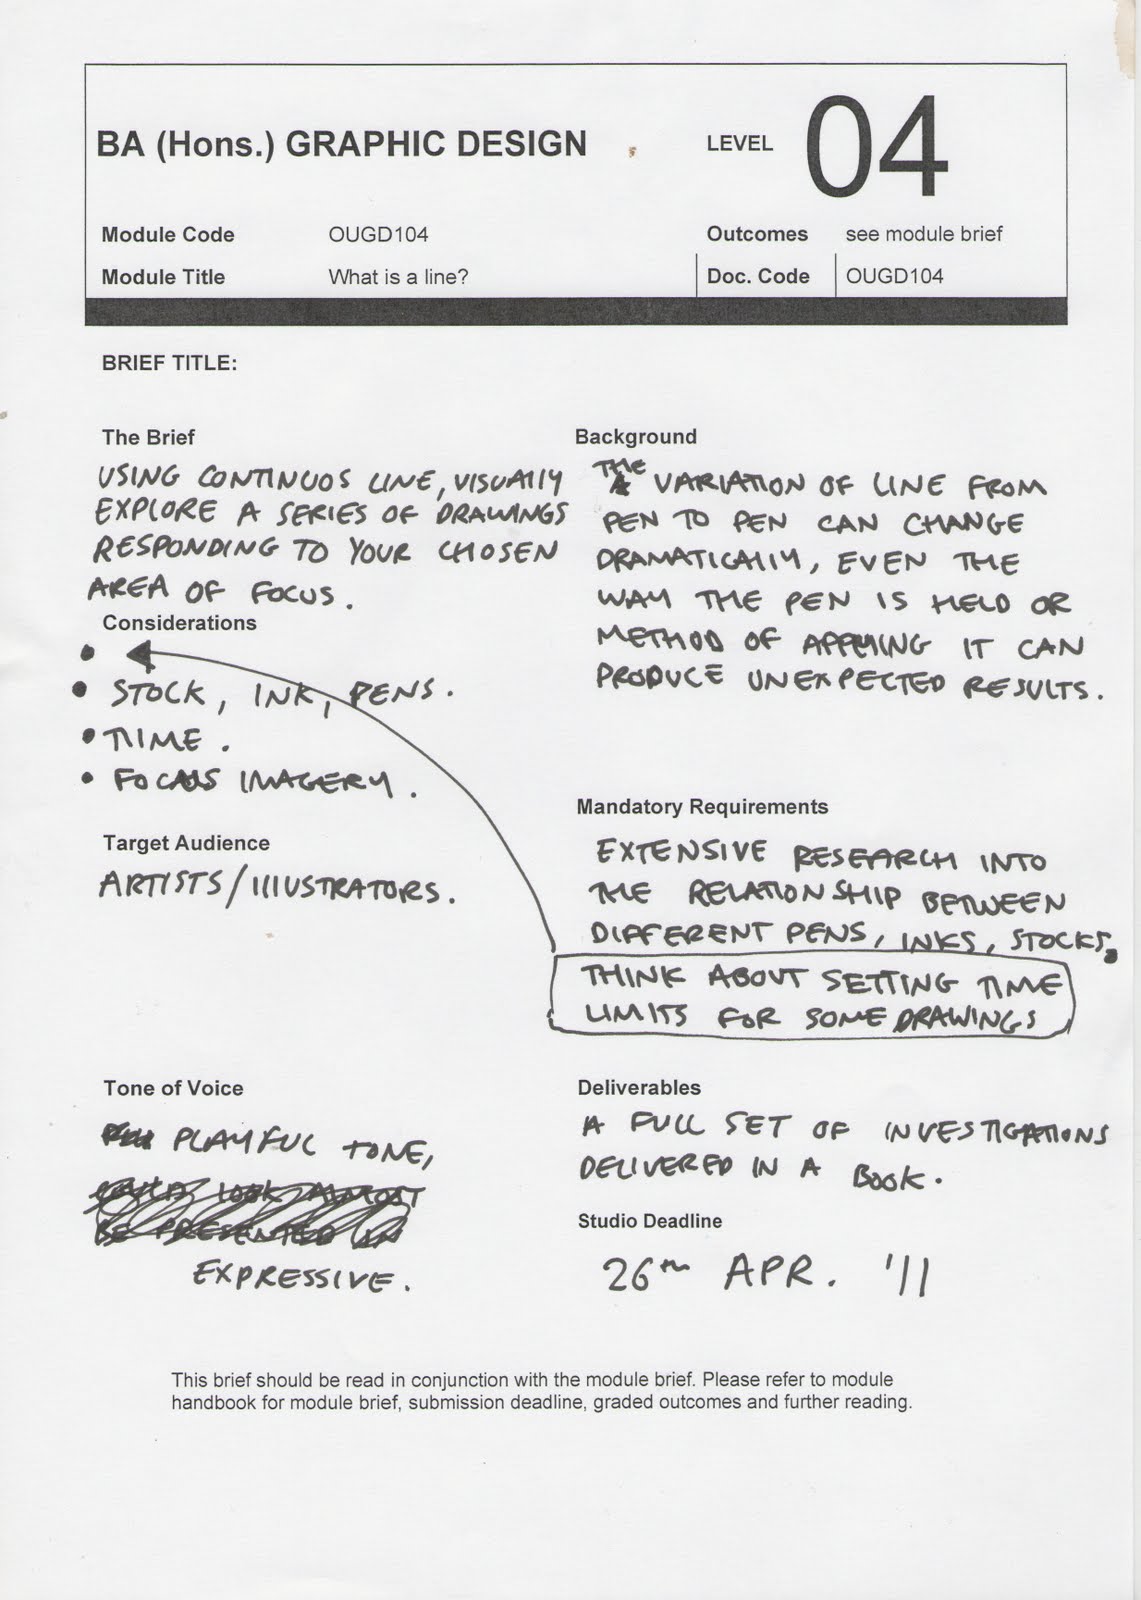 BA (Hons.) GRAPHIC DESIGN
LEVEL 04
Module Code OUGD104
Outcomes see module brief
Module Title What is a line?
Doc. Code OUGD104
BRIEF TITLE:
The Brief
USING CONTINUOS LINE, VISUALLY
EXPLORE A SERIES OF DRAWINGS
RESPONDING TO YOUR CHOSEN
AREA OF FOCUS.
Considerations
•
• STOCK, INK, PENS.
• TIME.
• FOCALS IMAGERY.
Target Audience
ARTISTS/ILLUSTRATORS.
Tone of Voice
PLAYFUL TONE,
COULD LOOK ALMOST
BE PRESENTED IN
EXPRESSIVE.
Background
THE VARIATION OF LINE FROM
PEN TO PEN CAN CHANGE
DRAMATICALLY, EVEN THE
WAY THE PEN IS HELD OR
METHOD OF APPLYING IT CAN
PRODUCE UNEXPECTED RESULTS.
Mandatory Requirements
EXTENSIVE RESEARCH INTO
THE RELATIONSHIP BETWEEN
DIFFERENT PENS, INKS, STOCKS.
THINK ABOUT SETTING TIME
LIMITS FOR SOME DRAWINGS
Deliverables
A FULL SET OF INVESTIGATIONS
DELIVERED IN A BOOK.
Studio Deadline
26th APR. '11
This brief should be read in conjunction with the module brief. Please refer to module
handbook for module brief, submission deadline, graded outcomes and further reading.